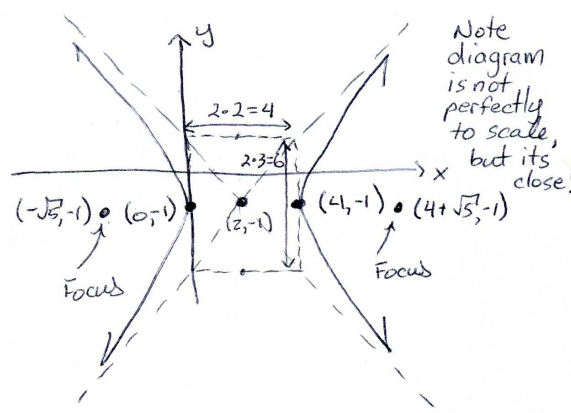 y
Note
diagram
is not
perfectly
to scale,
but its
close!
2·2=4
2·3=6
x
(-√5,-1)
(0,-1)
(2,-1)
(4,-1)
(4+√5,-1)
Focus
Focus